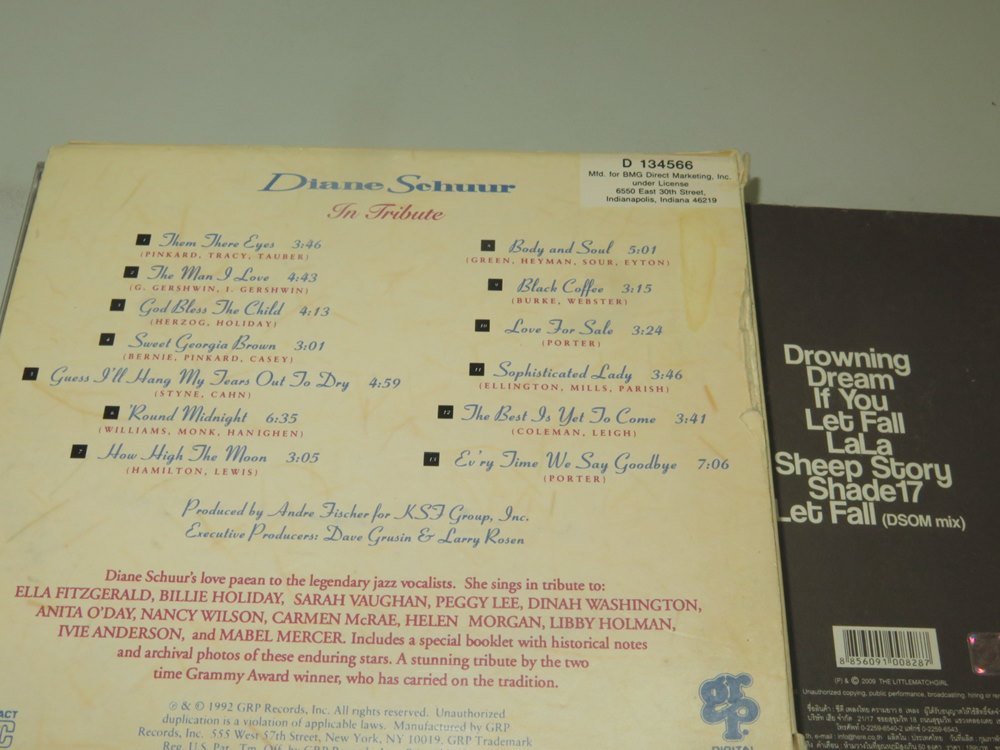 D 134566
Mfd. for BMG Direct Marketing, Inc.
under License
6550 East 30th Street,
Indianapolis, Indiana 46219
Diane Schuur
In Tribute
1 Them There Eyes 3:46
(PINKARD, TRACY, TAUBER)
2 The Man I Love 4:43
(G. GERSHWIN, I. GERSHWIN)
3 God Bless The Child 4:13
(HERZOG, HOLIDAY)
4 Sweet Georgia Brown 3:01
(BERNIE, PINKARD, CASEY)
5 Guess I'll Hang My Tears Out To Dry 4:59
(STYNE, CAHN)
6 'Round Midnight 6:35
(WILLIAMS, MONK, HANIGHEN)
7 How High The Moon 3:05
(HAMILTON, LEWIS)
8 Body and Soul 5:01
(GREEN, HEYMAN, SOUR, EYTON)
9 Black Coffee 3:15
(BURKE, WEBSTER)
10 Love For Sale 3:24
(PORTER)
11 Sophisticated Lady 3:46
(ELLINGTON, MILLS, PARISH)
12 The Best Is Yet To Come 3:41
(COLEMAN, LEIGH)
13 Ev'ry Time We Say Goodbye 7:06
(PORTER)
Produced by Andre Fischer for KSF Group, Inc.
Executive Producers: Dave Grusin & Larry Rosen
Diane Schuur's love paean to the legendary jazz vocalists. She sings in tribute to:
ELLA FITZGERALD, BILLIE HOLIDAY, SARAH VAUGHAN, PEGGY LEE, DINAH WASHINGTON,
ANITA O'DAY, NANCY WILSON, CARMEN McRAE, HELEN MORGAN, LIBBY HOLMAN,
IVIE ANDERSON, and MABEL MERCER. Includes a special booklet with historical notes
and archival photos of these enduring stars. A stunning tribute by the two
time Grammy Award winner, who has carried on the tradition.
℗ & © 1992 GRP Records, Inc. All rights reserved. Unauthorized
duplication is a violation of applicable laws. Manufactured by GRP
Records, Inc. 555 West 57th Street, New York, NY 10019. GRP Trademark
Reg. U.S. Pat. Tm. Off. by GRP
grp
DIGITAL
Drowning
Dream
If You
Let Fall
LaLa
Sheep Story
Shade17
Let Fall (DSOM mix)
8 856091 008287
(P) & © 2009 THE LITTLEMATCHGIRL
Unauthorized copying, public performance, broadcasting, hiring or